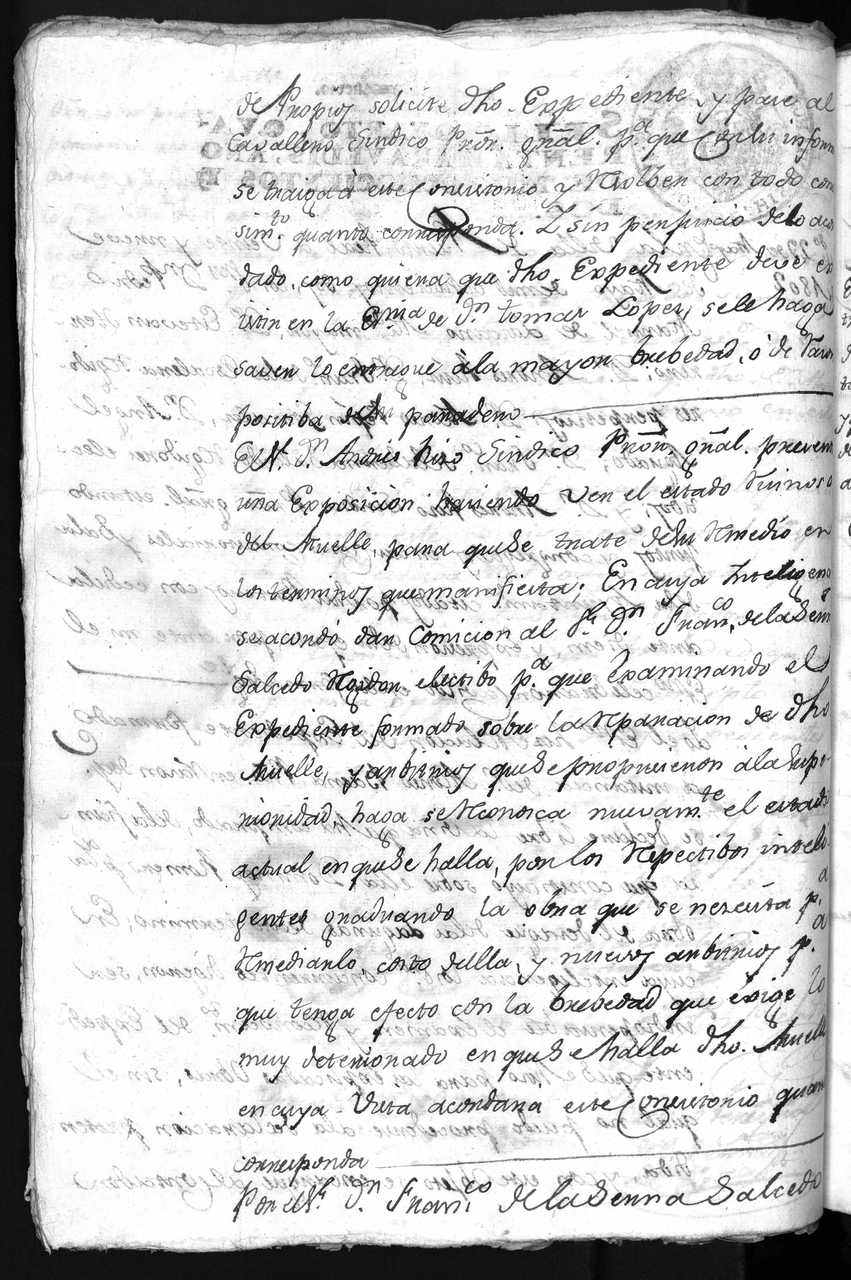 de Propios solicite dho. Expediente y pase al
Cavallero Sindico Pror. gral. pa. que con su inform
se traiga à este Consistorio y rresolber con todo con
simto. quanto corresponda. Y sin perjuicio de lo acor
dado, como quiera que dho. Expediente deve ex
istir en la Esnia de Dn. tomas Lopes, se le haga
saver lo entregue à la mayor brebedad, ò dè razon
positiba de su paradero
El Sr. Dn. Andres Rizo Sindico Pror. gral. presentó
una Exposicion haciendo ver el estado Ruinoso
del Muelle, para que se trate de su rremedio en
los terminos que manifiesta; En cuya Inteligena.
se acordó dar Comicion al Sr. Dn. Franco. de la Serna
Salcedo Rexidor electibo pa. que Examinando el
Expediente formado sobre la rreparacion de dho
Muelle, y arbitrios que se propucieron à la Supe-
rioridad, haga se rreconosca nuevamte. el estado
actual en que se halla, por los rrespectibos inteli
gentes graduando la obra que se nezesita pa.
rremediarlo, costo de ella, y nuevos arbitrios pa.
que tenga efecto con la brebedad que exige lo
muy deteriorado en que se halla dho. Muelle
en cuya Vista acordará este Consistorio quanto
corresponda
Por el Sr. Dn. Franco. de la Serna Salcedo